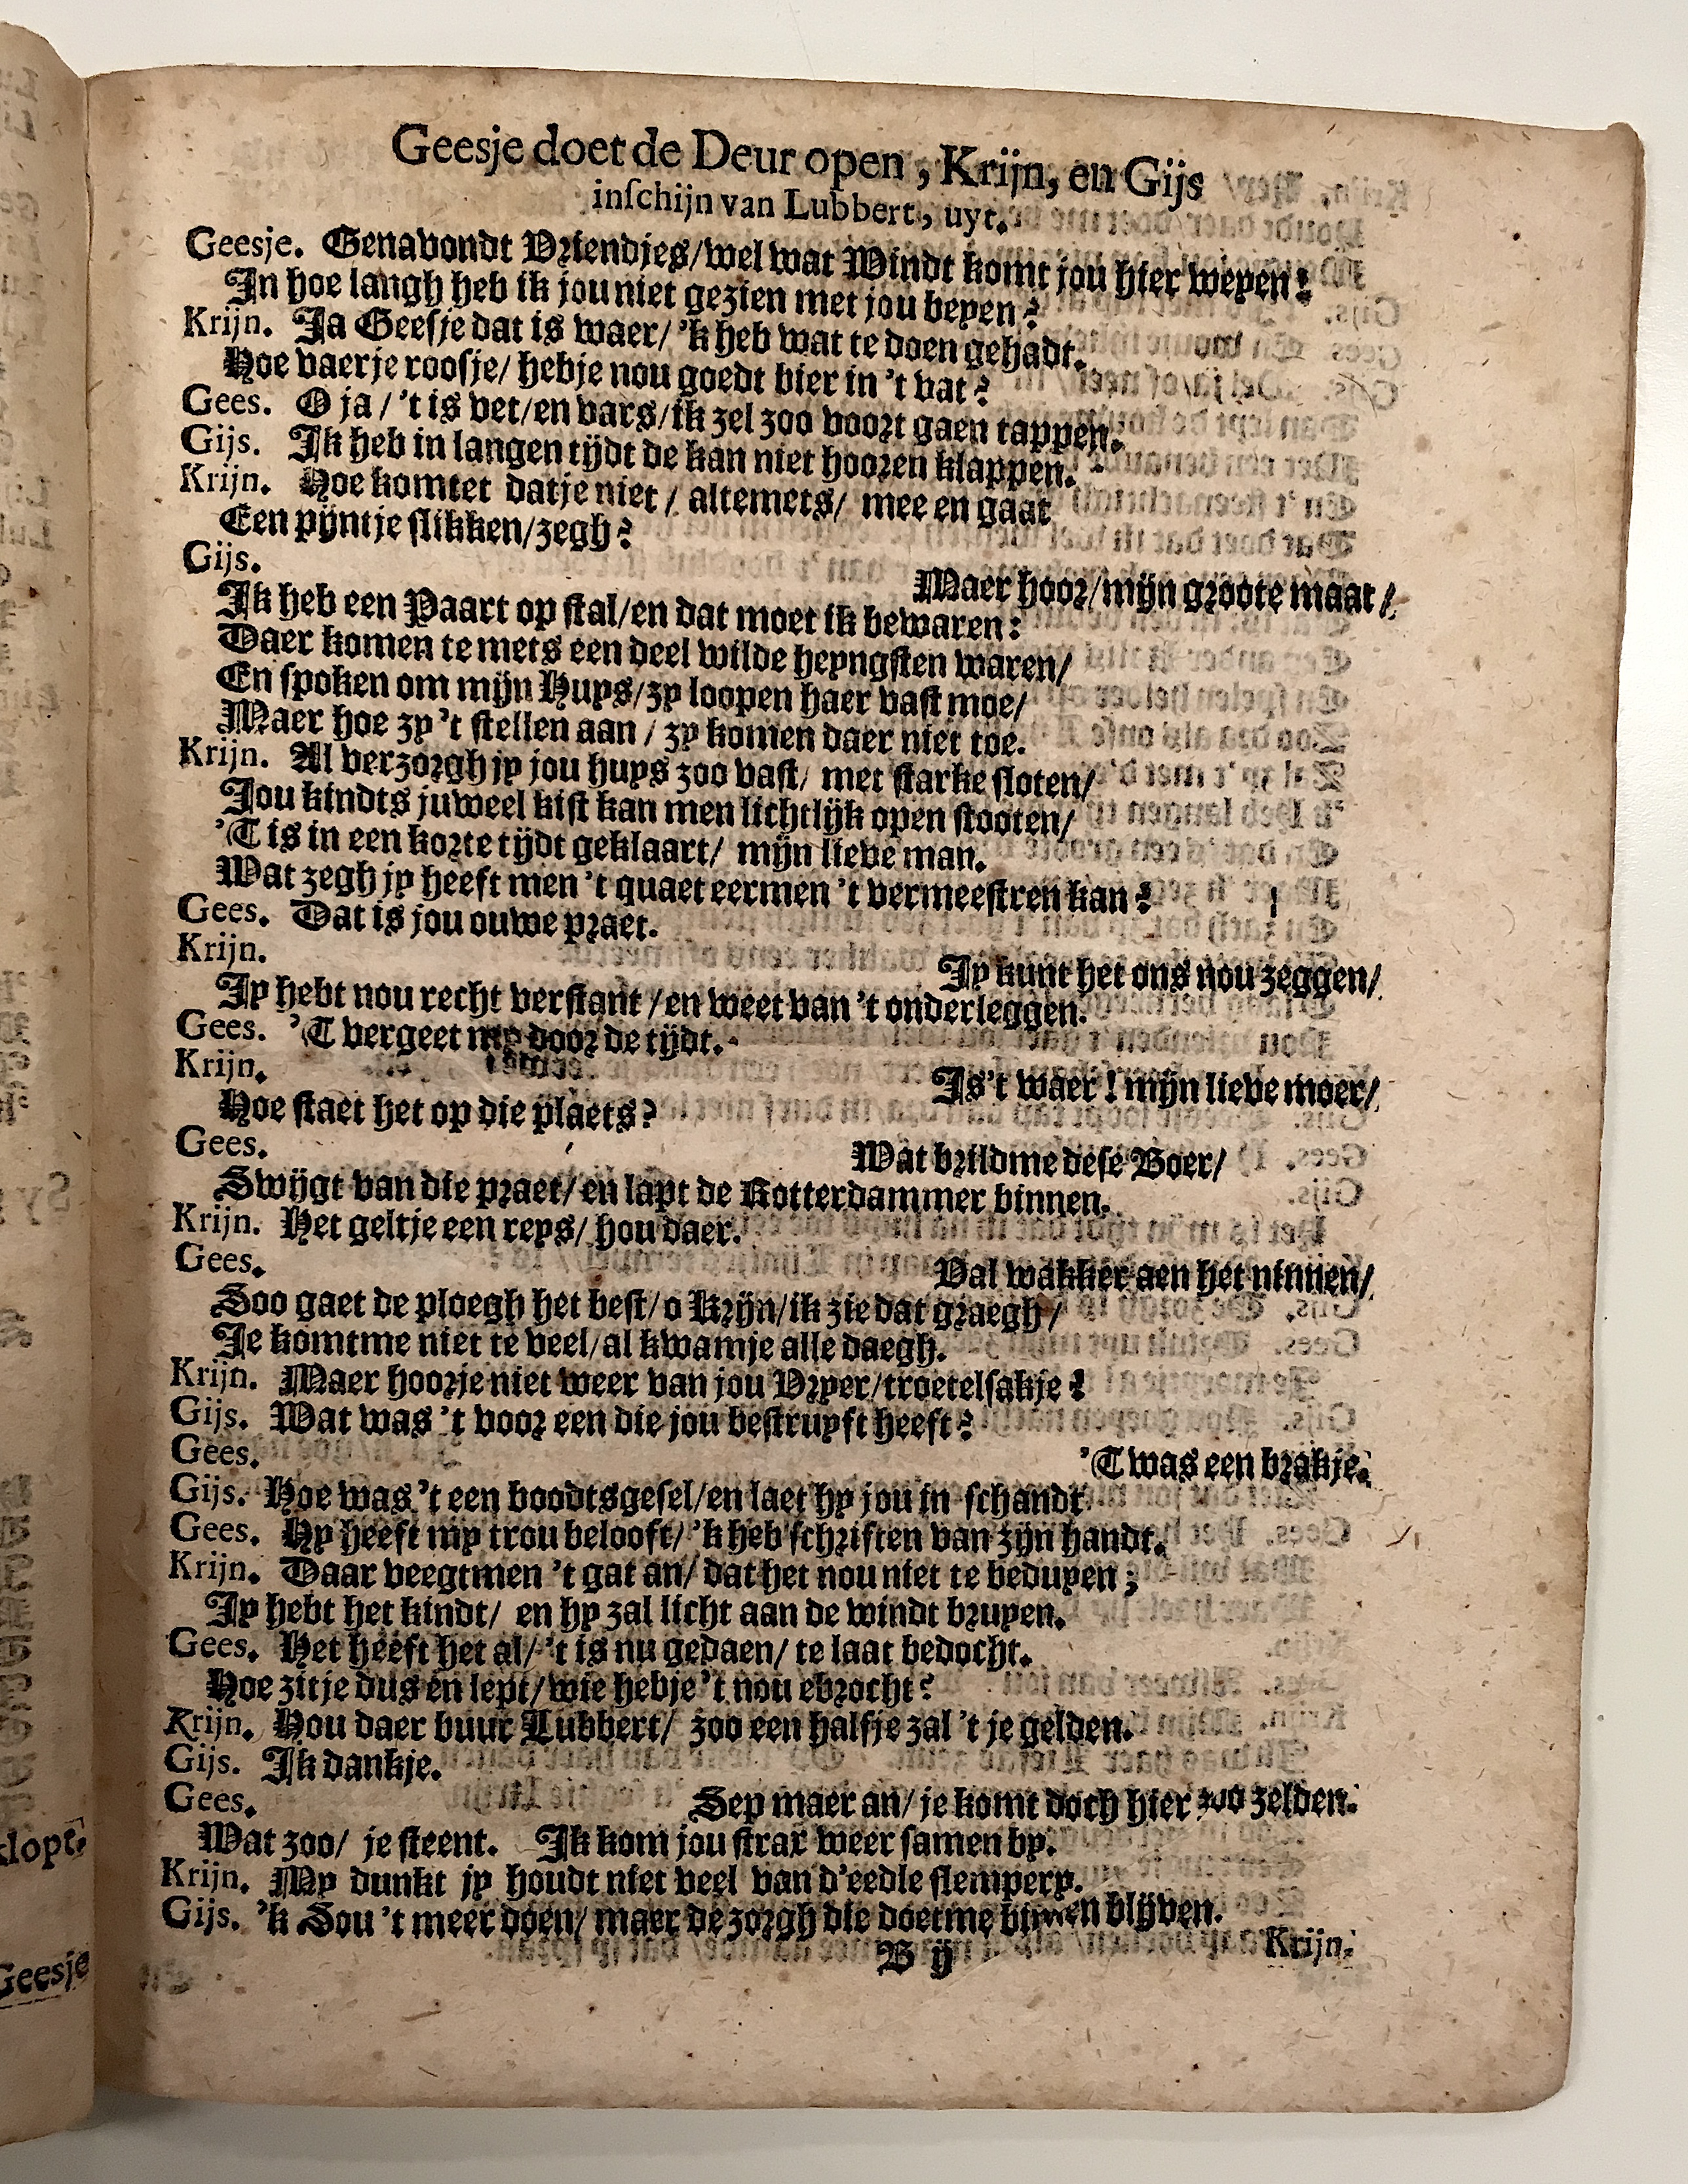 Geesje doet de Deur open, Krijn, en Gijs
inſchijn van Lubbert, uyt.
Geesje. Genavondt Vriendjes/wel wat Windt komt jou hier weyen!
In hoe langh heb ik jou niet gezien met jou beyen?
Krijn. Ja Geesje dat is waer/ 'k heb wat te doen gehadt.
Hoe vaerje roosje/ hebje nou goedt bier in 't vat?
Gees. O ja/ 't is vet/en vars/ik zel zoo voort gaen tappen.
Gijs. Ik heb in langen tijdt de kan niet hooren klappen.
Krijn. Hoe komtet datje niet/ altemets/ mee en gaat
Een pijntje ſlikken/zegh?
Gijs.
Maer hoor/mijn groote maat/
Ik heb een Paart op ſtal/en dat moet ik bewaren:
Daer komen te mets een deel wilde heyngſten waren/
En ſpoken om mijn Huys/zy loopen haer vaſt moe/
Maer hoe zy 't ſtellen aan/ zy komen daer niet toe.
Krijn. Al verzorgh jy jou huys zoo vaſt/ met ſtarke ſloten/
Jou kindts juweel kiſt kan men lichtlijk open ſtooten/
'T is in een korte tijdt geklaart/ mijn lieve man.
Wat zegh jy heeft men 't quaet eermen 't vermeeſtren kan?
Gees. Dat is jou ouwe praet.
Krijn.
Jy kunt het ons nou zeggen/
Jy hebt nou recht verſtant/en weet van 't onderleggen.
Gees. 'T vergeet my door de tijdt.
Krijn.
Is't waer! mijn lieve moer/
Hoe ſtaet het op die plaets?
Gees.
Wat brildme deſe Boer/
Swijgt van die praet/ en lapt de Rotterdammer binnen.
Krijn. Het geltje een reys/ hou daer.
Gees.
Val wakker aen het ninnen/
Soo gaet de ploegh het beſt/o Krijn/ik zie dat graegh/
Je komtme niet te veel/al kwamje alle daegh.
Krijn. Maer hoorje niet weer van jou Vryer/troetelſakje?
Gijs. Wat was 't voor een die jou beſtruyft heeft?
Gees.
'T was een brakje.
Gijs. Hoe was 't een bootsgeſel/en laet hy jou in ſchandt
Gees. Hy heeft my trou belooft/ 'k heb ſchriften van zijn handt.
Krijn. Daar veegtmen 't gat an/ dat het nou niet te beduyen;
Jy hebt het kindt/ en hy zal licht aan de windt bruyen.
Gees. Het heeft het al/ 't is nu gedaen/ te laat bedocht.
Hoe zitje dus en lept/wie hebje 't nou ebrocht?
Krijn. Hou daer buur Lubbert/ zoo een halfje zal 't je gelden.
Gijs. Ik dankje.
Gees.
Sep maer an/ je komt doch hier zoo zelden.
Wat zoo/ je ſteent. Ik kom jou ſtrax weer ſamen by.
Krijn. My dunkt jy houdt niet veel van d'eedle ſlempery.
Gijs. 'k Sou 't meer doen/ maer de zorgh die doetme binnen blijven.
B ij
Krijn.
klopt.
Geesje